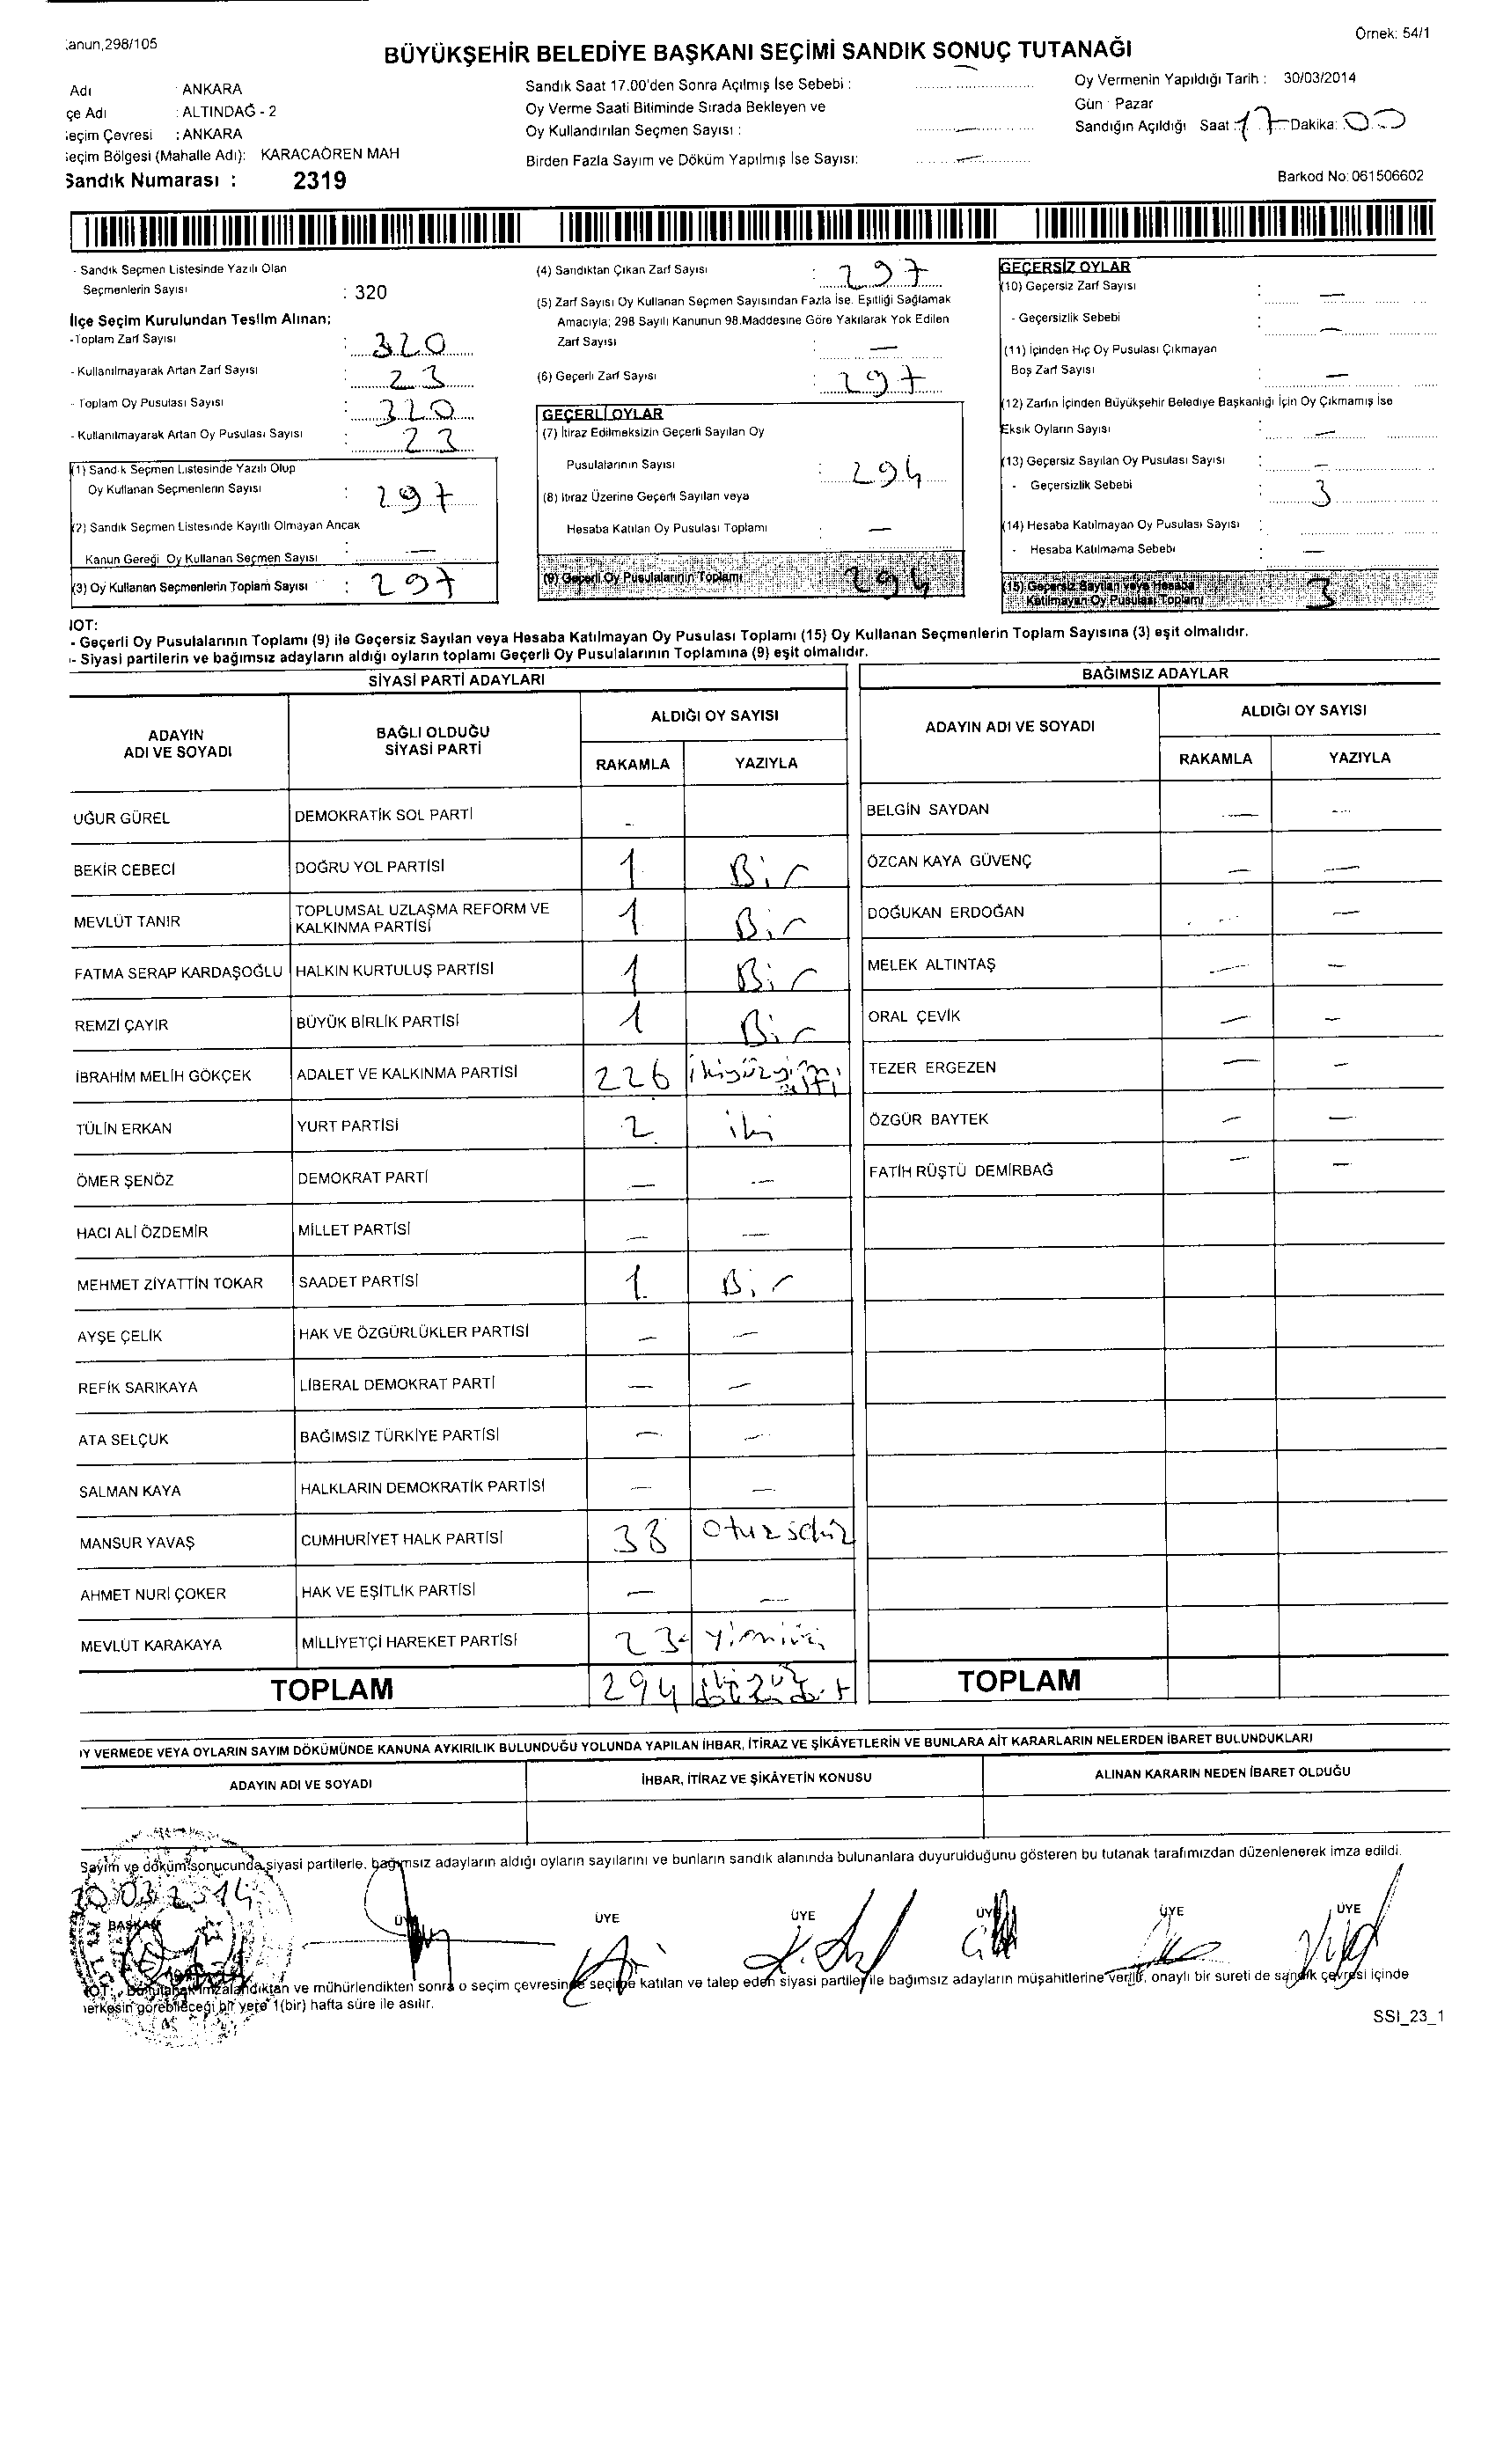 anun,298/105
Örnek: 54/1
BÜYÜKŞEHİR BELEDİYE BAŞKANI SEÇİMİ SANDIK SONUÇ TUTANAĞI
Adı : ANKARA
çe Adı : ALTINDAĞ - 2
eçim Çevresi : ANKARA
eçim Bölgesi (Mahalle Adı): KARACAÖREN MAH
Sandık Numarası : 2319
Sandık Saat 17.00'den Sonra Açılmış İse Sebebi : —
Oy Verme Saati Bitiminde Sırada Bekleyen ve
Oy Kullandırılan Seçmen Sayısı : —
Birden Fazla Sayım ve Döküm Yapılmış İse Sayısı: —
Oy Vermenin Yapıldığı Tarih : 30/03/2014
Gün : Pazar
Sandığın Açıldığı Saat : 17 Dakika: 00
Barkod No: 061506602
- Sandık Seçmen Listesinde Yazılı Olan
Seçmenlerin Sayısı : 320
İlçe Seçim Kurulundan Teslim Alınan;
-Toplam Zarf Sayısı : 320
- Kullanılmayarak Artan Zarf Sayısı : 23
- Toplam Oy Pusulası Sayısı : 320
- Kullanılmayarak Artan Oy Pusulası Sayısı : 23
(1) Sandık Seçmen Listesinde Yazılı Olup
Oy Kullanan Seçmenlerin Sayısı : 297
(2) Sandık Seçmen Listesinde Kayıtlı Olmayan Ancak
Kanun Gereği Oy Kullanan Seçmen Sayısı : —
(3) Oy Kullanan Seçmenlerin Toplam Sayısı : 297
(4) Sandıktan Çıkan Zarf Sayısı : 297
(5) Zarf Sayısı Oy Kullanan Seçmen Sayısından Fazla İse. Eşitliği Sağlamak
Amacıyla; 298 Sayılı Kanunun 98.Maddesine Göre Yakılarak Yok Edilen
Zarf Sayısı : —
(6) Geçerli Zarf Sayısı : 297
GEÇERLİ OYLAR
(7) İtiraz Edilmeksizin Geçerli Sayılan Oy
Pusulalarının Sayısı : 294
(8) İtiraz Üzerine Geçerli Sayılan veya
Hesaba Katılan Oy Pusulası Toplamı : —
(9) Geçerli Oy Pusulalarının Toplamı 294
GEÇERSİZ OYLAR
(10) Geçersiz Zarf Sayısı : —
- Geçersizlik Sebebi : —
(11) İçinden Hiç Oy Pusulası Çıkmayan
Boş Zarf Sayısı : —
(12) Zarfın İçinden Büyükşehir Belediye Başkanlığı İçin Oy Çıkmamış İse
Eksik Oyların Sayısı : —
(13) Geçersiz Sayılan Oy Pusulası Sayısı : —
- Geçersizlik Sebebi : 3
(14) Hesaba Katılmayan Oy Pusulası Sayısı :
- Hesaba Katılmama Sebebi : —
(15) Geçersiz Sayılan veya Hesaba
Katılmayan Oy Pusulası Toplamı 3
NOT:
- Geçerli Oy Pusulalarının Toplamı (9) ile Geçersiz Sayılan veya Hesaba Katılmayan Oy Pusulası Toplamı (15) Oy Kullanan Seçmenlerin Toplam Sayısına (3) eşit olmalıdır.
- Siyasi partilerin ve bağımsız adayların aldığı oyların toplamı Geçerli Oy Pusulalarının Toplamına (9) eşit olmalıdır.
SİYASİ PARTİ ADAYLARI
ADAYIN ADI VE SOYADI BAĞLI OLDUĞU SİYASİ PARTİ ALDIĞI OY SAYISI
RAKAMLA YAZIYLA
UĞUR GÜREL DEMOKRATİK SOL PARTİ -
BEKİR CEBECİ DOĞRU YOL PARTİSİ 1 Bir
MEVLÜT TANIR TOPLUMSAL UZLAŞMA REFORM VE KALKINMA PARTİSİ 1 Bir
FATMA SERAP KARDAŞOĞLU HALKIN KURTULUŞ PARTİSİ 1 Bir
REMZİ ÇAYIR BÜYÜK BİRLİK PARTİSİ 1 Bir
İBRAHİM MELİH GÖKÇEK ADALET VE KALKINMA PARTİSİ 226 ikiyüzyirmialtı
TÜLİN ERKAN YURT PARTİSİ 2 iki
ÖMER ŞENÖZ DEMOKRAT PARTİ — —
HACI ALİ ÖZDEMİR MİLLET PARTİSİ — —
MEHMET ZİYATTİN TOKAR SAADET PARTİSİ 1 Bir
AYŞE ÇELİK HAK VE ÖZGÜRLÜKLER PARTİSİ — —
REFİK SARIKAYA LİBERAL DEMOKRAT PARTİ — —
ATA SELÇUK BAĞIMSIZ TÜRKİYE PARTİSİ — —
SALMAN KAYA HALKLARIN DEMOKRATİK PARTİSİ — —
MANSUR YAVAŞ CUMHURİYET HALK PARTİSİ 38 Otuzsekiz
AHMET NURİ ÇOKER HAK VE EŞİTLİK PARTİSİ — —
MEVLÜT KARAKAYA MİLLİYETÇİ HAREKET PARTİSİ 23
TOPLAM 294
BAĞIMSIZ ADAYLAR
ADAYIN ADI VE SOYADI ALDIĞI OY SAYISI
RAKAMLA YAZIYLA
BELGİN SAYDAN — —
ÖZCAN KAYA GÜVENÇ — —
DOĞUKAN ERDOĞAN — —
MELEK ALTINTAŞ — —
ORAL ÇEVİK — —
TEZER ERGEZEN — —
ÖZGÜR BAYTEK — —
FATİH RÜŞTÜ DEMİRBAĞ — —
TOPLAM
Y VERMEDE VEYA OYLARIN SAYIM DÖKÜMÜNDE KANUNA AYKIRILIK BULUNDUĞU YOLUNDA YAPILAN İHBAR, İTİRAZ VE ŞİKÂYETLERİN VE BUNLARA AİT KARARLARIN NELERDEN İBARET BULUNDUKLARI
ADAYIN ADI VE SOYADI İHBAR, İTİRAZ VE ŞİKÂYETİN KONUSU ALINAN KARARIN NEDEN İBARET OLDUĞU
Sayım ve döküm sonucunda siyasi partilerle, bağımsız adayların aldığı oyların sayılarını ve bunların sandık alanında bulunanlara duyurulduğunu gösteren bu tutanak tarafımızdan düzenlenerek imza edildi.
30 03 2014
BAŞKAN ÜYE ÜYE ÜYE ÜYE ÜYE ÜYE
NOT: Bu tutanak imzalandıktan ve mühürlendikten sonra o seçim çevresinde seçime katılan ve talep eden siyasi partiler ile bağımsız adayların müşahitlerine verilir, onaylı bir sureti de sandık çevresi içinde
herkesin görebileceği bir yere 1(bir) hafta süre ile asılır.
SSI_23_1